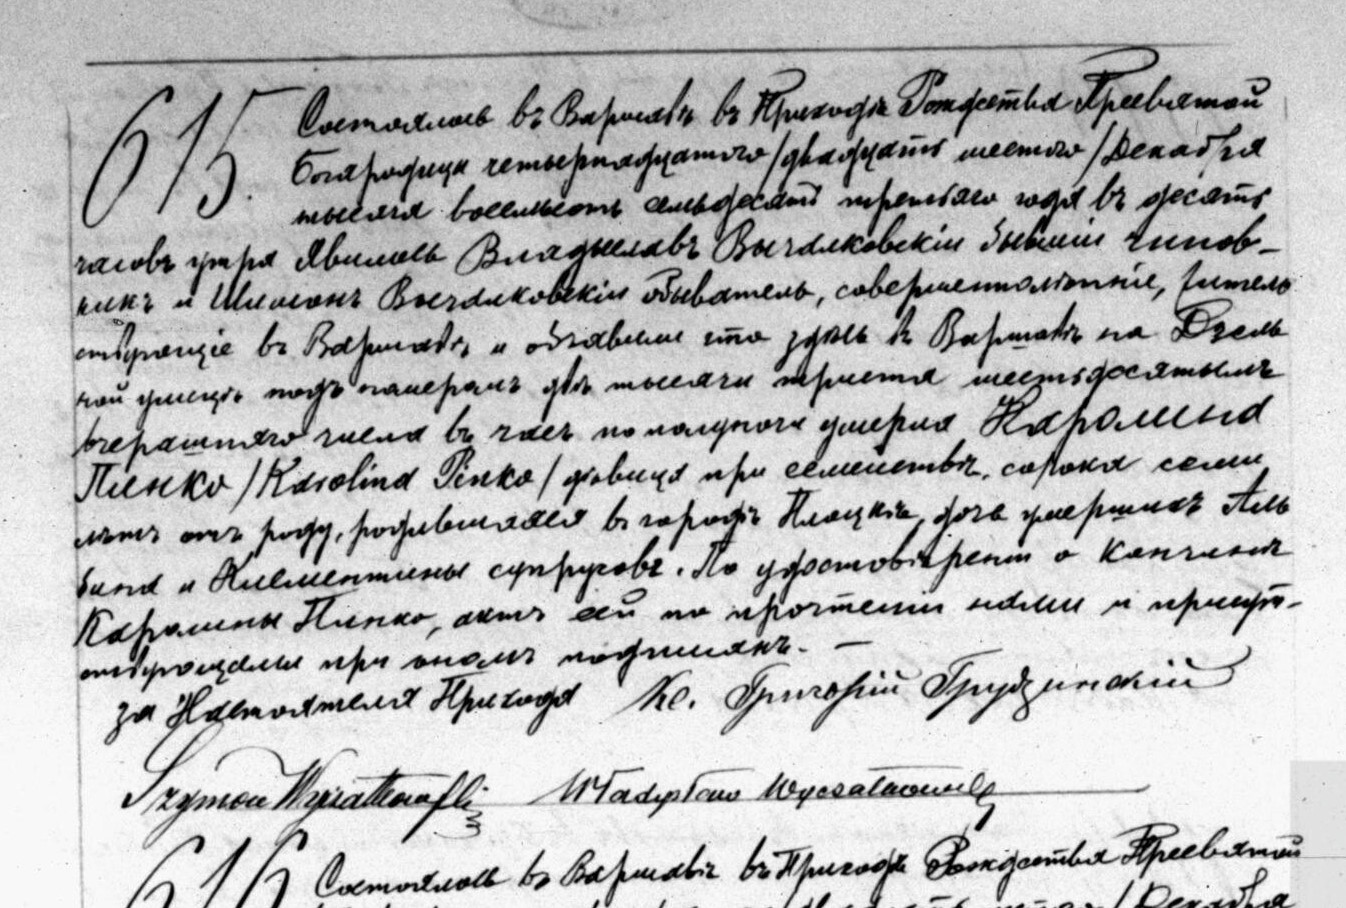 615. Состоялось въ Варшавѣ въ Приходѣ Рождества Пресвятой
Богародицы четырнадцатого /двадцать шестого/ Декабря
тысяча восемьсотъ семьдесятъ третьяго года въ десять
часовъ утра Явились Владыславъ Вычалковскій бывшій чинов-
никъ и Шимонъ Вычалковскій обыватель, совершеннолѣтніе, житель
ствующіе въ Варшавѣ и объявили что здѣсь въ Варшавѣ на Дзель
ной улицѣ подъ номеромъ двѣ тысячи триста шестьдесятымъ
вчерашняго числа въ часъ по полуночи умерла Каролина
Пинко /Karolina Pinko/ дѣвица при семействѣ, сорока семи
лѣтъ отъ роду, родившаяся въ городѣ Плоцкѣ, дочь умершихъ Аль
бина и Клементины супруговъ. По удостовѣреніи о кончинѣ
Каролины Пинко, актъ сей по прочтеніи нами и присут-
ствующими при ономъ подписанъ. —
за Настоятеля Прихода Кс. Григорій Грудзинскій
Szymon Wyczałkowski Władysław Wyczałkowski
616 Состоялось въ Варшавѣ въ Приходѣ Рождества Пресвятой
/Декабря